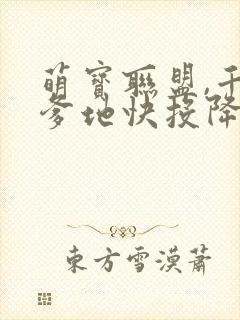 萌寳聯盟,千
爹地快投降
東方雪漠蕭